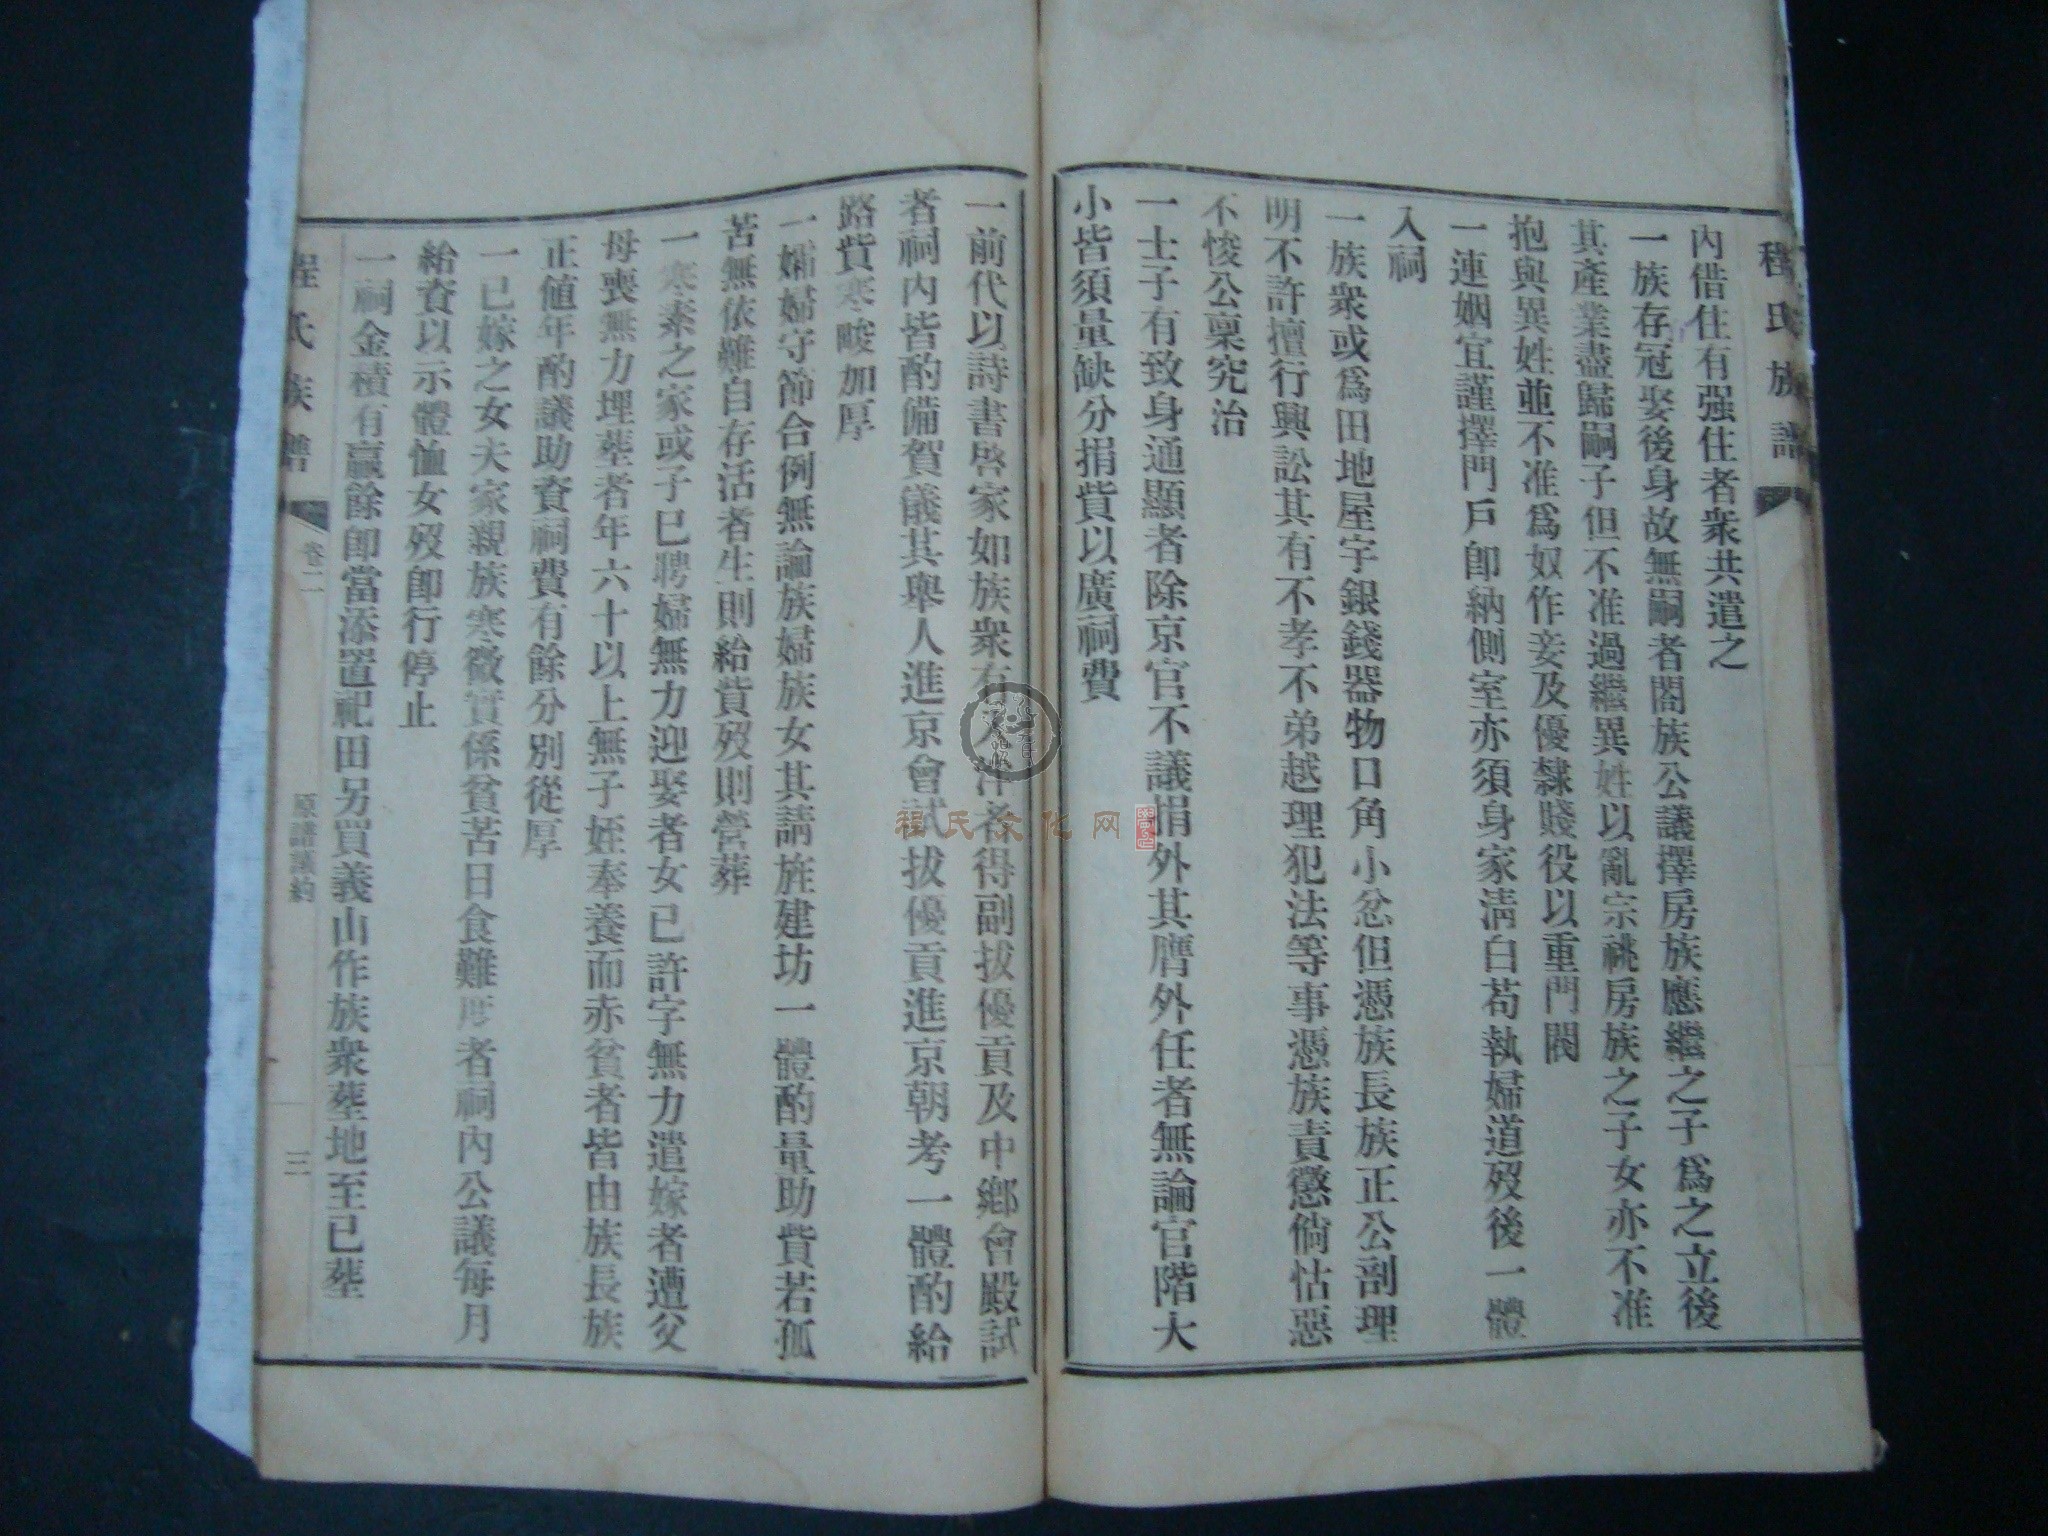 程氏族譜
內借住有强住者衆共遣之
一族存冠娶後身故無嗣者閤族公議擇房族應繼之子爲之立後
其產業盡歸嗣子但不准過繼異姓以亂宗祧房族之子女亦不准
抱與異姓並不准爲奴作妾及優隸賤役以重門閥
一連姻宜謹擇門戶卽納側室亦須身家淸白苟執婦道歿後一體
入祠
一族衆或爲田地屋宇銀錢器物口角小忿但憑族長族正公剖理
明不許擅行興訟其有不孝不弟越理犯法等事憑族責懲倘怙惡
不悛公稟究治
一士子有致身通顯者除京官不議捐外其膺外任者無論官階大
小皆須量缺分捐貲以廣祠費
一前代以詩書啓家如族衆有入泮者得副拔優貢及中鄉會殿試
者祠內皆酌備賀儀其舉人進京會試拔優貢進京朝考一體酌給
路費寒畯加厚
一孀婦守節合例無論族婦族女其請旌建坊一體酌量助費若孤
苦無依難自存活者生則給貲歿則營葬
一寒素之家或子已聘婦無力迎娶者女已許字無力遣嫁者遭父
母喪無力埋塟者年六十以上無子姪奉養而赤貧者皆由族長族
正値年酌議助資祠費有餘分別從厚
一已嫁之女夫家親族寒微實係貧苦日食難度者祠內公議每月
給資以示體恤女歿卽行停止
一祠金積有贏餘卽當添置祀田另買義山作族衆塟地至已塟
程氏族譜
卷二
原譜議約
三
程氏文化网